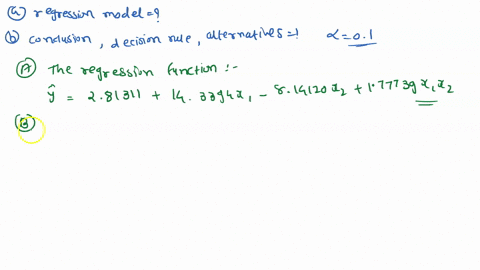 (a) regression model=?
(b) conclusion, decision rule, alternatives=? α=0.1
(A) The regression function :-
ŷ = 2.81311 + 14.3394x₁ - 8.14120x₂ + 1.77739x₁x₂
(B)